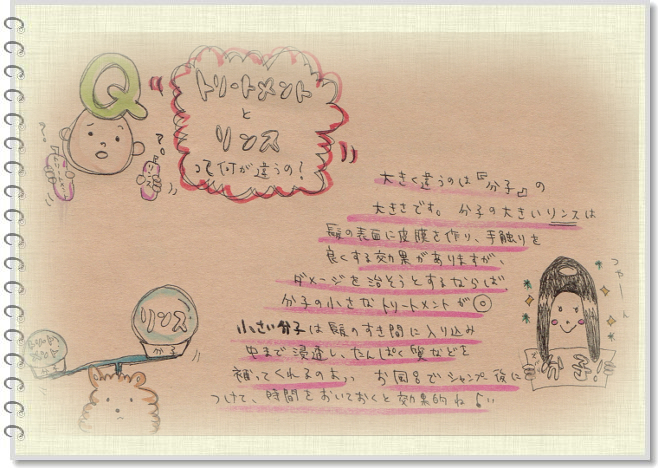 Q
トリートメント
と
リンス
って何が違うの?
リンス
大きく違うのは『分子』の
大きさです。分子の大きいリンスは
髪の表面に皮膜を作り、手触りを
良くする効果がありますが、
ダメージを治そうとするならば
分子の小さなトリートメントが◎
小さい分子は髪のすき間に入り込み
中まで浸透し、たんぱく質などを
補ってくれるのよっ お風呂でシャンプー後に
つけて、時間をおいておくと効果的ね♪
つやーん
リンス
分子
トリートメント